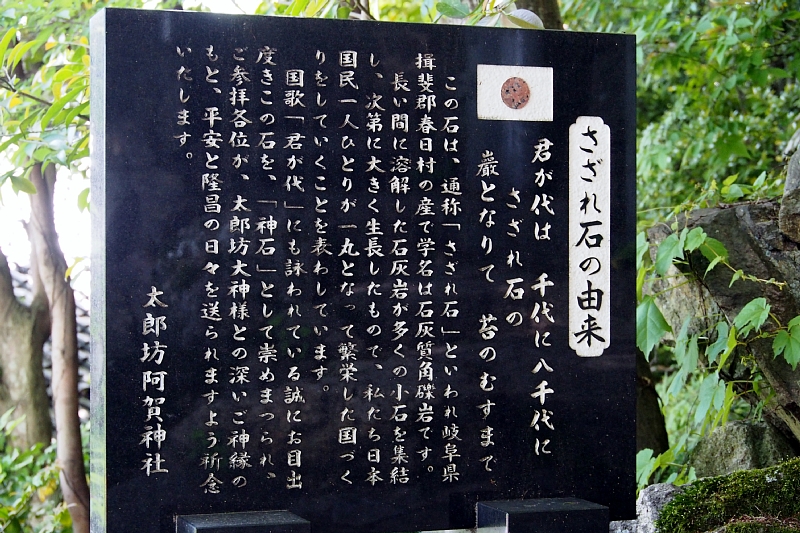 さざれ石の由来
君が代は　千代に八千代に
さざれ石の
巌となりて　苔のむすまで
この石は、通称「さざれ石」といわれ岐阜県
揖斐郡春日村の産で学名は石灰質角礫岩です。
長い間に溶解した石灰岩が多くの小石を集結
し、次第に大きく生長したもので、私たち日本
国民一人ひとりが一丸となって繁栄した国づく
りをしていくことを表わしています。
国歌「君が代」にも詠われている誠にお目出
度きこの石を、「神石」として崇めまつられ、
ご参拝各位が、太郎坊大神様との深いご神縁の
もと、平安と隆昌の日々を送られますよう祈念
いたします。
太郎坊阿賀神社